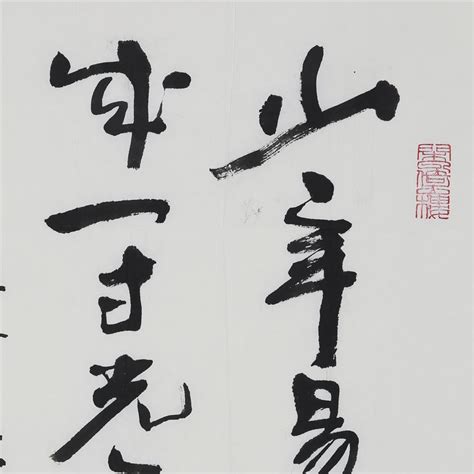 少年易
成一寸光